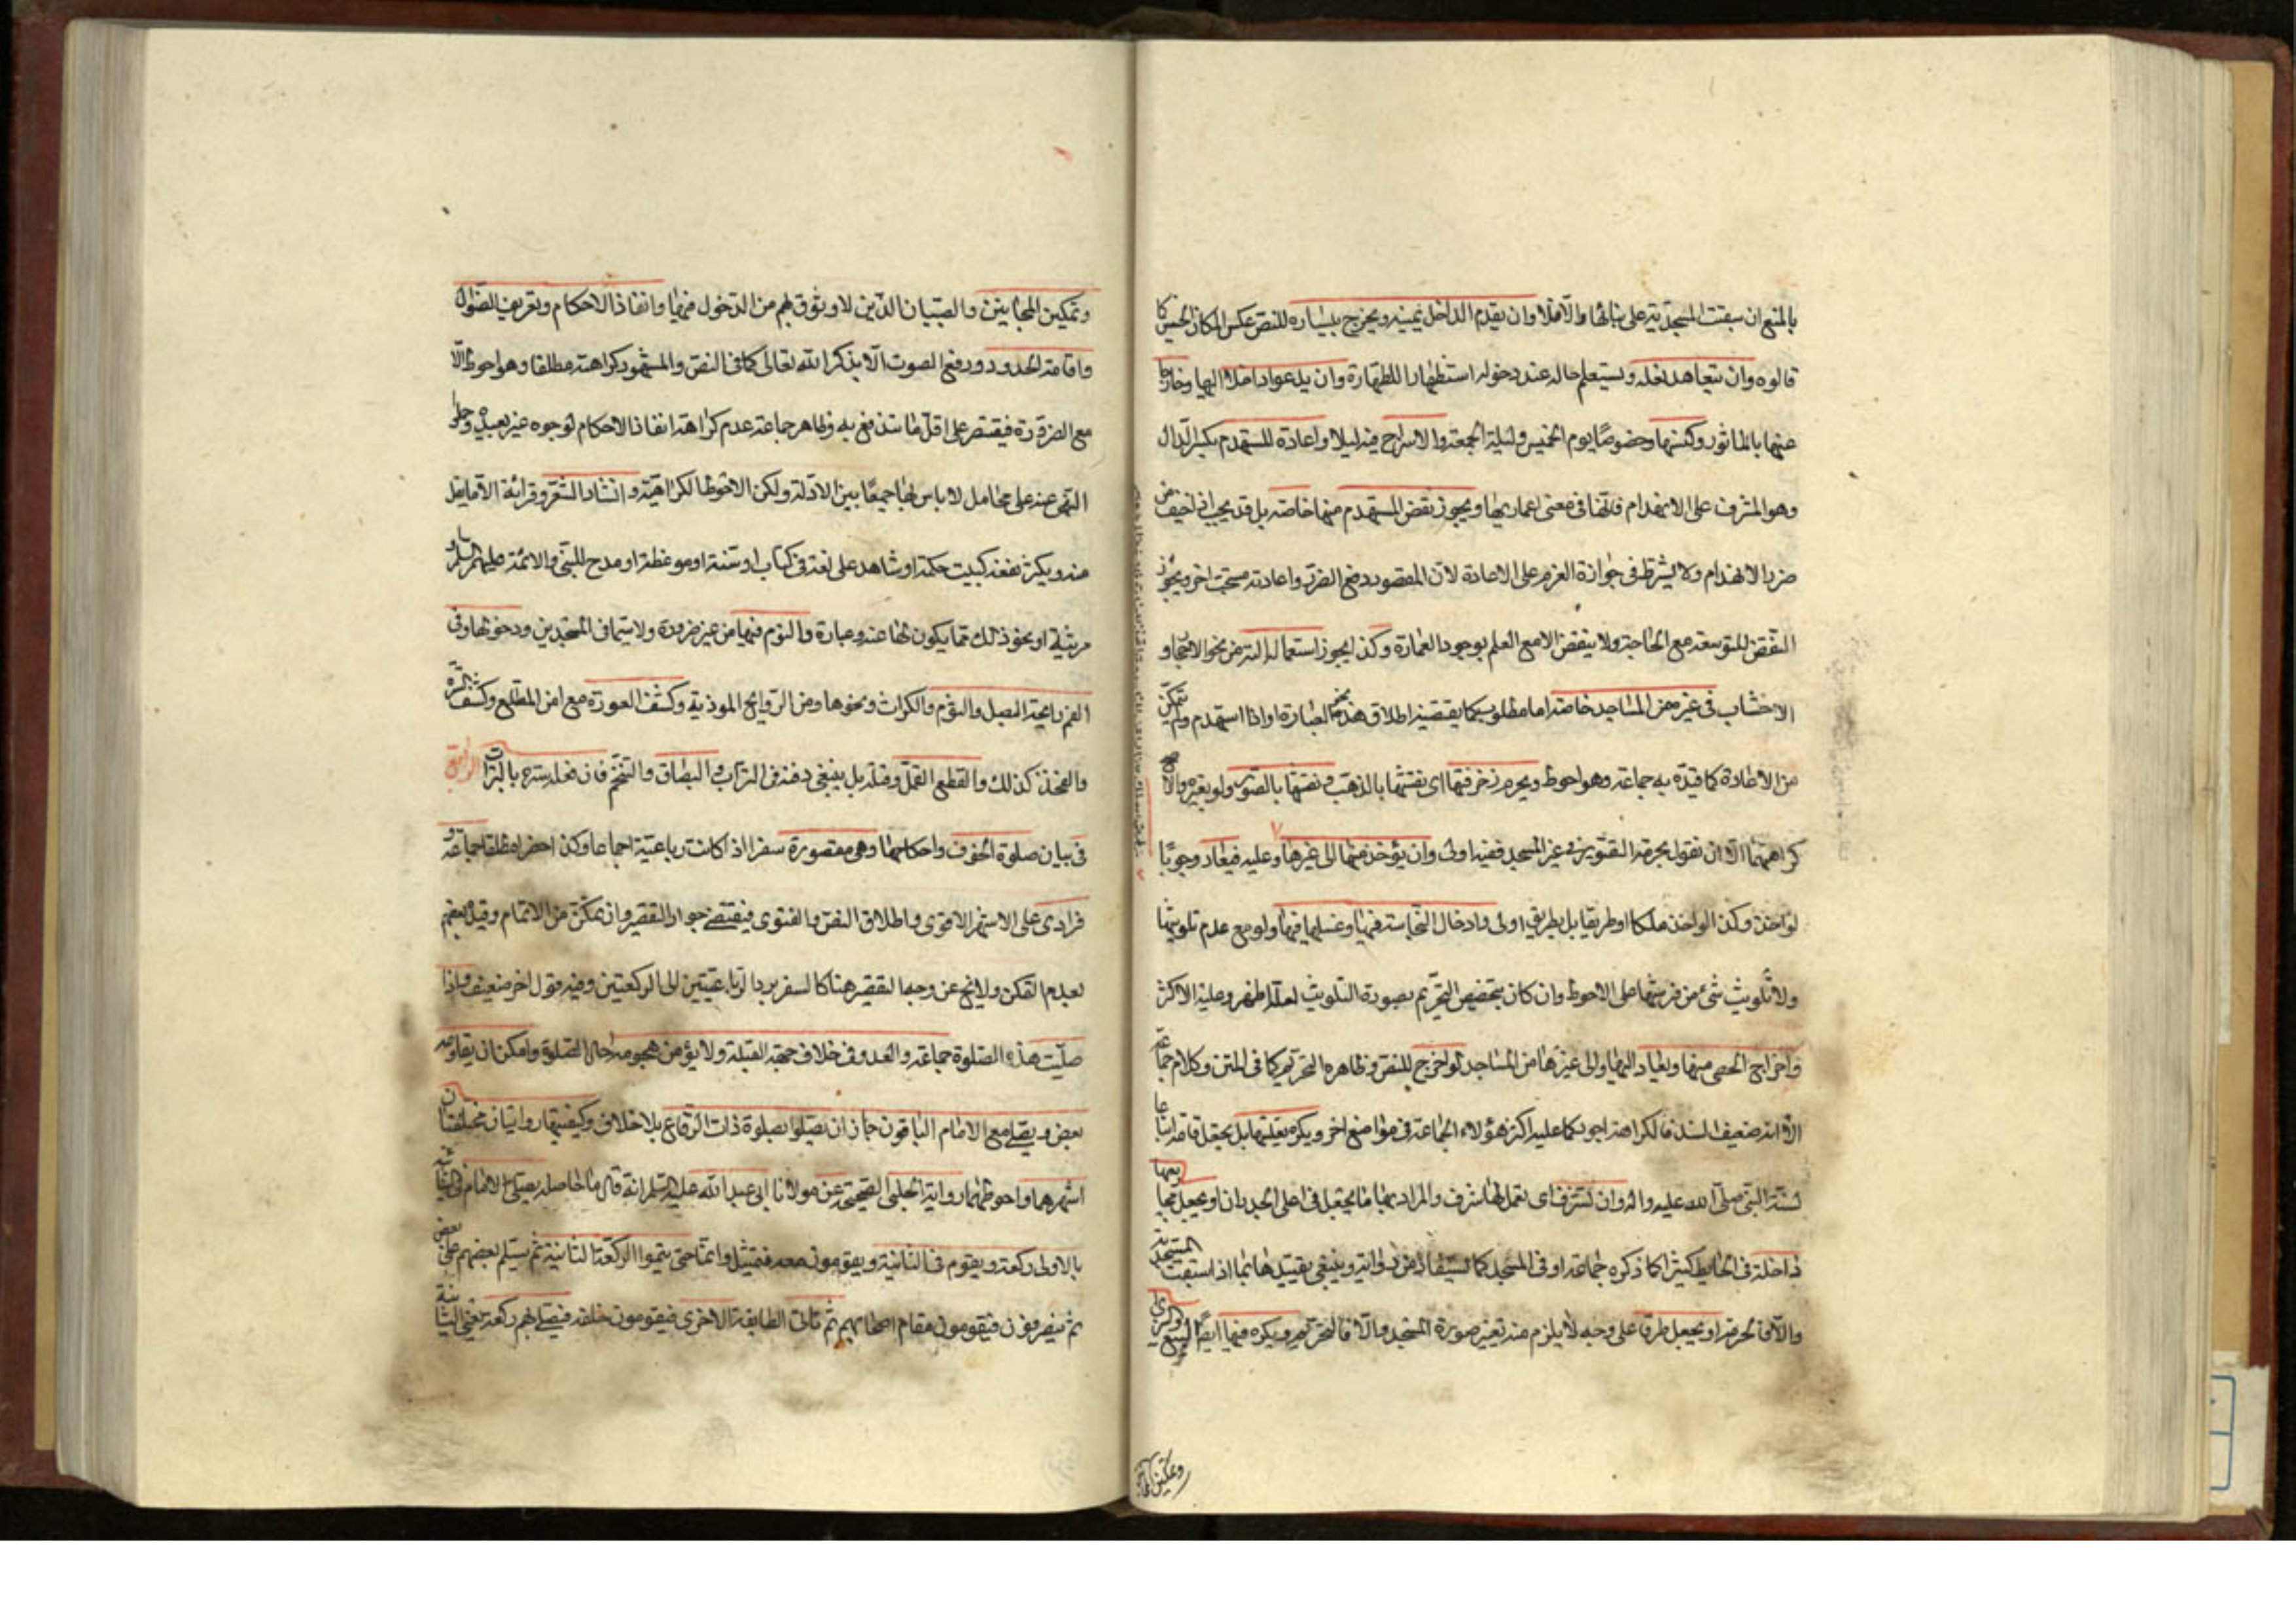 بالمنع ان سبقت المسجدية على بنائها والا فلا وان يقدم الداخل يمينه ويخرج بيساره للنص عكس المكان الخسيس كما
قالوه وان يتعاهد نعله ويستعلم حاله عند دخوله استظهارا للطهارة وان يدعو داخلا اليها وخارجا
عنها بالماثور وكنسها وخصوصا يوم الخميس وليلة الجمعة والاسراج فيه ليلا واعادة المستهدم بكسر الدال
وهو المشرف على الانهدام فانها فى معنى اعمارها ويجوز نقض المستهدم منها خاصة بل قد يجب اذا خيف من
ضرر الانهدام ولا يشترط فى جوازه العزم على الاعادة لان المقصود دفع الضرر واعادته مستحب اخر ويجوز
النقض للتوسعة مع الحاجة ولا ينقض الا مع العلم بوجود العمارة وكذا يجوز استعمال الته من نحو الاحجار و
الاخشاب فى غيره من المساجد خاصة اما مطلوب كما يقتضيه اطلاق هذه العبارة او اذا استهدم ولم يتمكن
من الاعادة كما قيده به جماعة وهو احوط ويحرم زخرفتها اى نقشها بالذهب ونقشها بالصور ولو بغيره والاصح
كراهتهما الا ان نقول بحرمة التصوير فى غير المسجد ففيه اولى وان يؤخذ منها الى غيرها وعليه فيعاد وجوبا
لو اخذ وكذا لو اخذ ملكا او طريقا بل بطريق اولى وادخال النجاسة فيها وغسلها فيها ولو مع عدم تلويثها
ولا تلويث شئ من فرشها على الاحوط وان كان تخصيص التحريم بصورة التلويث لعله اظهر وعليه الاكثر
واخراج الحصى منها ويعاد اليها والى غيرها من المساجد لو اخرج للنص وظاهره التحريم كما فى المتن وكلام جماعة
الا انه ضعيف السند فالكراهة اجود كما عليه اكثر هؤلاء الجماعة فى مواضع اخر ويكره تعليتها بل يجعل قامة اتباعا
لسنة النبى صلى الله عليه واله وان تشرف اى تعمل لها شرف والمراد بها ما يجعل فى اعلى الجدران او يجعل محاريبها
داخلة فى الحايط كثيرا كما ذكره جماعة او فى المسجد كما يستفاد من رواية وينبغى تقييدهما بما اذا استبقت المسجدية
والا فالحرمة او يجعل طرقا على وجه لا يلزم منه تغيير صورة المسجد والا فالتحريم ويكره فيها ايضا البيع والشرى
وتمكين المجا
وتمكين المجانين والصبيان الذين لا وثوق بهم من الدخول فيها وانفاذ الاحكام وتعريف الضوال
واقامة الحدود ورفع الصوت الا بذكر الله تعالى كما فى النص والمشهود كراهته مطلقا وهو احوط الا
مع الضرورة فيقتصر على اقل ما تندفع به وظاهر جماعة عدم كراهة انفاذ الاحكام لوجوه غير بعيدة وحمل
النهى عنه على محامل لا باس بها جمعا بين الادلة ولكن الاحوط الكراهية وانشاد الشعر وقرائته الا ما يقل
منه ويكثر نفعه كبيت حكمة او شاهد على لغة فى كتاب او سنة او موعظة او مدح للنبى والائمة عليهم السلام او
مرثية او نحو ذلك مما يكون لها عنه وعبارة والنوم فيها من غير ضرورة ولا سيما فى المسجدين ودخولها وفى
الفم رايحة البصل والثوم والكراث ونحوها من الروايح الموذية وكشف العورة مع امن المطلع وكشف السرة
والفخذ كذلك والقطع القمل وقتله بل ينبغى دفنه فى التراب والبصاق والتنخم فان فعله سترع بالتراب الرابع
فى بيان صلوة الخوف واحكامها وهى مقصورة سفرا اذا كانت رباعية اجماعا وكذا حضرا مطلقا جماعة و
فرادى على الاشهر الاقوى واطلاق النص والفتوى يقتضى جواز التقصير وان تمكن من الاتمام وقيل بعضهم
بعدم التمكن ولا يخ عن وجه التقصير هنا كالسفر برد الرباعيتين الى الركعتين وفيه قول اخر ضعيف واذا
صليت هذه الصلوة جماعة والعدو فى خلاف جهة القبلة ولا يؤمن هجومه حال الصلوة وامكن ان يقاومه
بعض ويصلى مع الامام الباقون جاز ان يصلوا بصلوة ذات الرقاع بلا خلاف وكيفيتها روايتان مختلفتان
اشهرهما واحوطهما رواية الحلبى الصحيحة عن مولانا ابى عبد الله عليه السلم انه قال ما حاصله يصلى الامام بالطائفة
بالاولى ركعة ويقوم فى الثانية ويقومون معه فيمثل قائما حتى يتموا الركعة الثانية ثم يسلم بعضهم على بعض
ثم ينصرفون فيقومون مقام اصحابهم ثم تاتى الطايفة الاخرى فيقومون خلفه فيصلى بهم ركعة هى الثانية